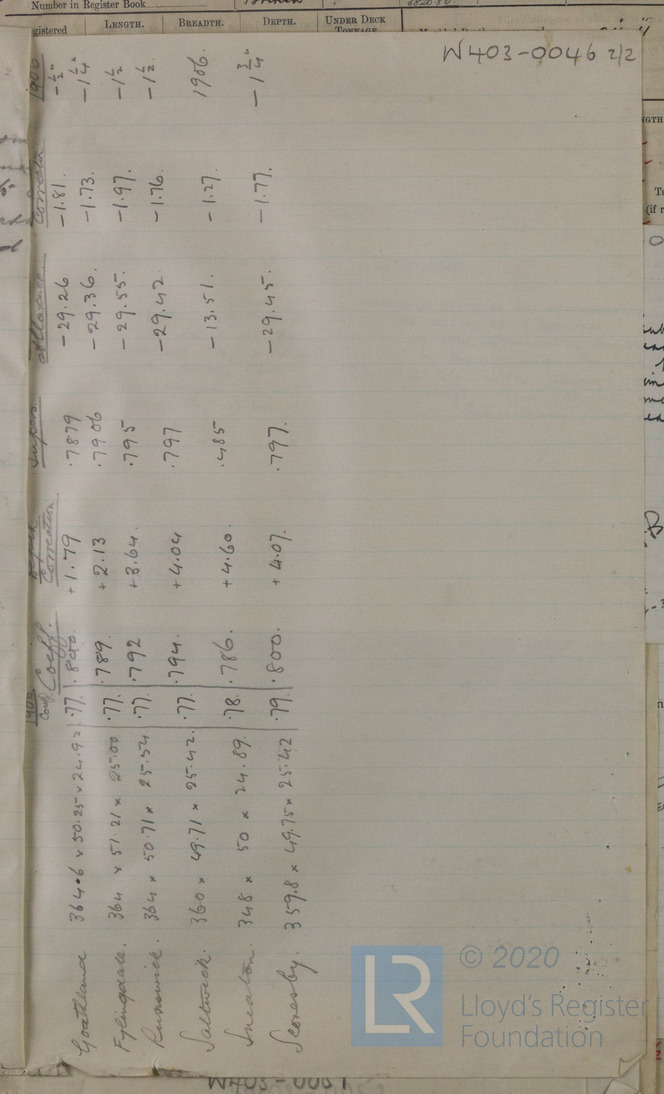 Number in Register Book
LENGTH. BREADTH. DEPTH. UNDER DECK
W403-0046 2/2
1906 Coeff. Correction Allowance Correction 1906
Goathland 364.6 x 50.25 x 24.92 .77 +1.79 .7879 -29.26 -1.81
Fylingdale. 364 x 51.21 x 25.00 .77. .789. +2.13 .7906 -29.36. -1.73. -1¼"
Runswick. 364 x 50.71 x 25.54 .77. .792 +3.64. .795 -29.55. -1.97. -1½
Saltwick. 360 x 49.71 x 25.42. .77. .794. +4.04 .797 -29.42 -1.76. -1½
Sneaton. 348 x 50 x 24.89. .78. .786. +4.60. .485 -13.51. -1.27. 1906.
Scoresby. 359.8 x 49.75 x 25.42 .79. .800. +4.07. .797. -29.45. -1.77. -1¾"
© 2020
LR
Lloyd's Register
Foundation
W403-0051